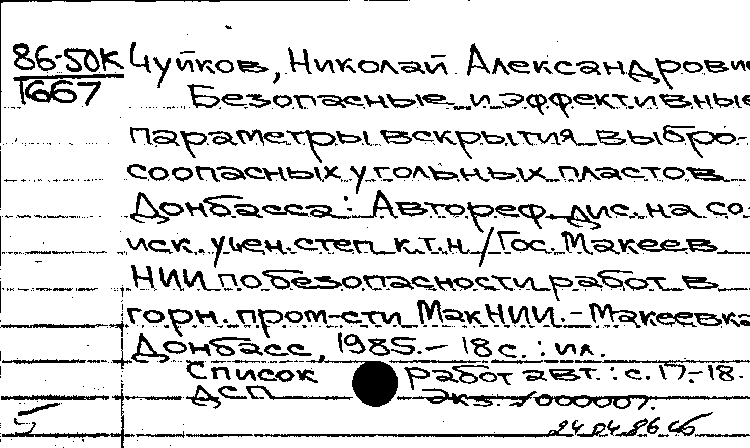 86-50К Чуйков, Николай Александрови
1667 Безопасные и эффективные
параметры вскрытия выбро-
соопасных угольных пластов
Донбасса: Автореф. дис. на со-
иск. учен. степ к.т.н. / Гос. Макеев
НИИ по безопасности работ в
горн. пром-сти МакНИИ. - Макеевка
Донбасс, 1985. - 18 с. : ил.
Список работ авт.: с. 17.-18.
ДСП Экз.
5 24 04.86